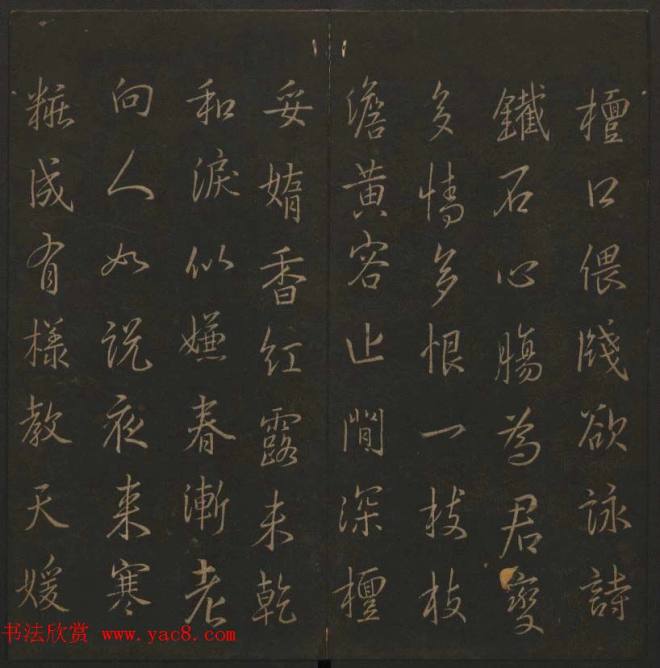 檀口偎牋欲詠詩
鐵石心腸為君變
多情多恨一枝枝
澹黄容止閒深檀
妥媠香紅露未乾
和淚似嫌春漸老
向人如說夜来寒
粧成有樣教天媛
书法欣赏 www.yac8.com